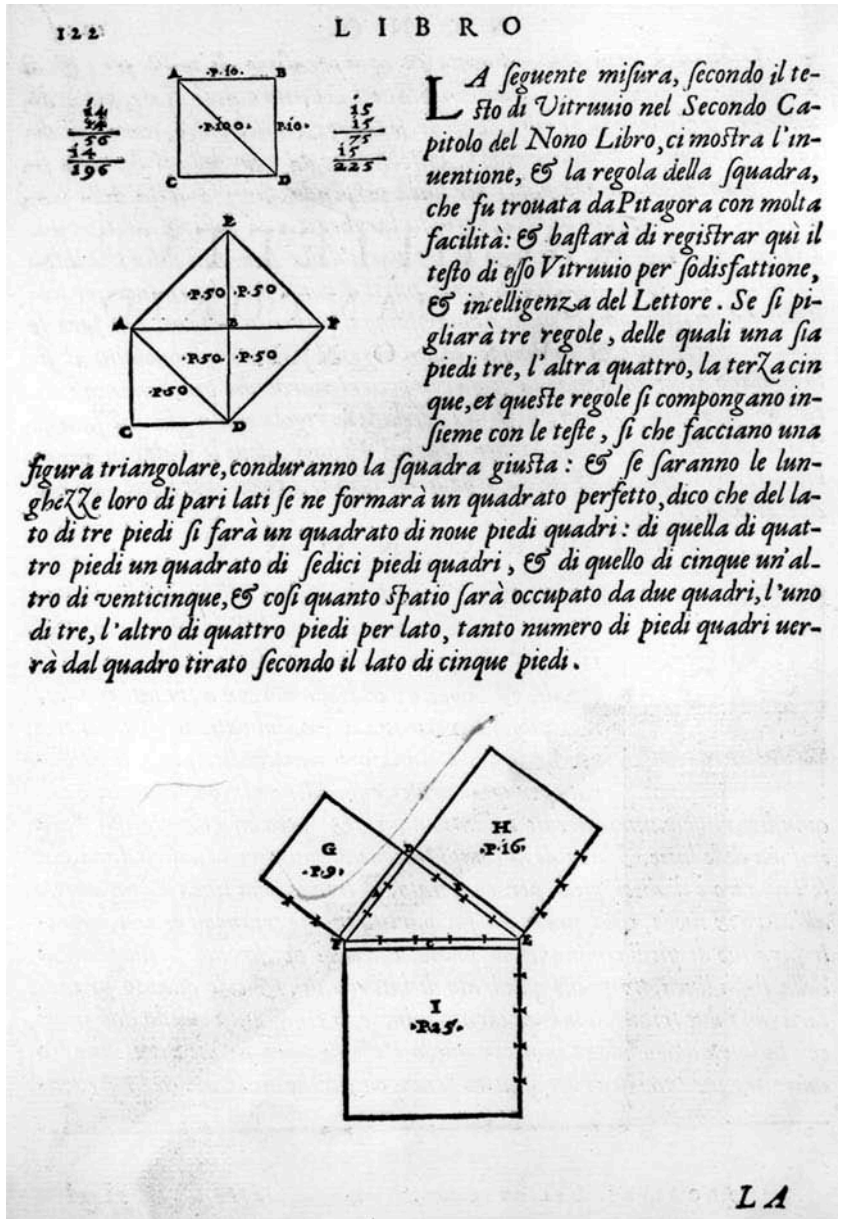 122
LIBRO
A .P.10. B
.P.100. .P.10.
C D
14
14
56
14
196
15
15
75
15
225
LA seguente misura, secondo il te-
sto di Vitruuio nel Secondo Ca-
pitolo del Nono Libro, ci mostra l'in-
uentione, & la regola della squadra,
che fu trouata da Pitagora con molta
facilità: & bastarà di registrar quì il
testo di esso Vitruuio per sodisfattione,
& intelligenza del Lettore. Se si pi-
gliarà tre regole, delle quali una sia
piedi tre, l'altra quattro, la terza cin
que, et queste regole si compongano in-
sieme con le teste, si che facciano una
figura triangolare, conduranno la squadra giusta: & se saranno le lun-
ghezze loro di pari lati se ne formarà un quadrato perfetto, dico che del la-
to di tre piedi si farà un quadrato di noue piedi quadri: di quella di quat-
tro piedi un quadrato di sedici piedi quadri, & di quello di cinque un'al-
tro di venticinque, & cosi quanto spatio sarà occupato da due quadri, l'uno
di tre, l'altro di quattro piedi per lato, tanto numero di piedi quadri uer-
rà dal quadro tirato secondo il lato di cinque piedi.
E
.P.50 .P.50
A B F
.P.50. .P.50
.P.50
C D
G
.P.9.
H
.P.16.
F C E
I
.P.25.
LA